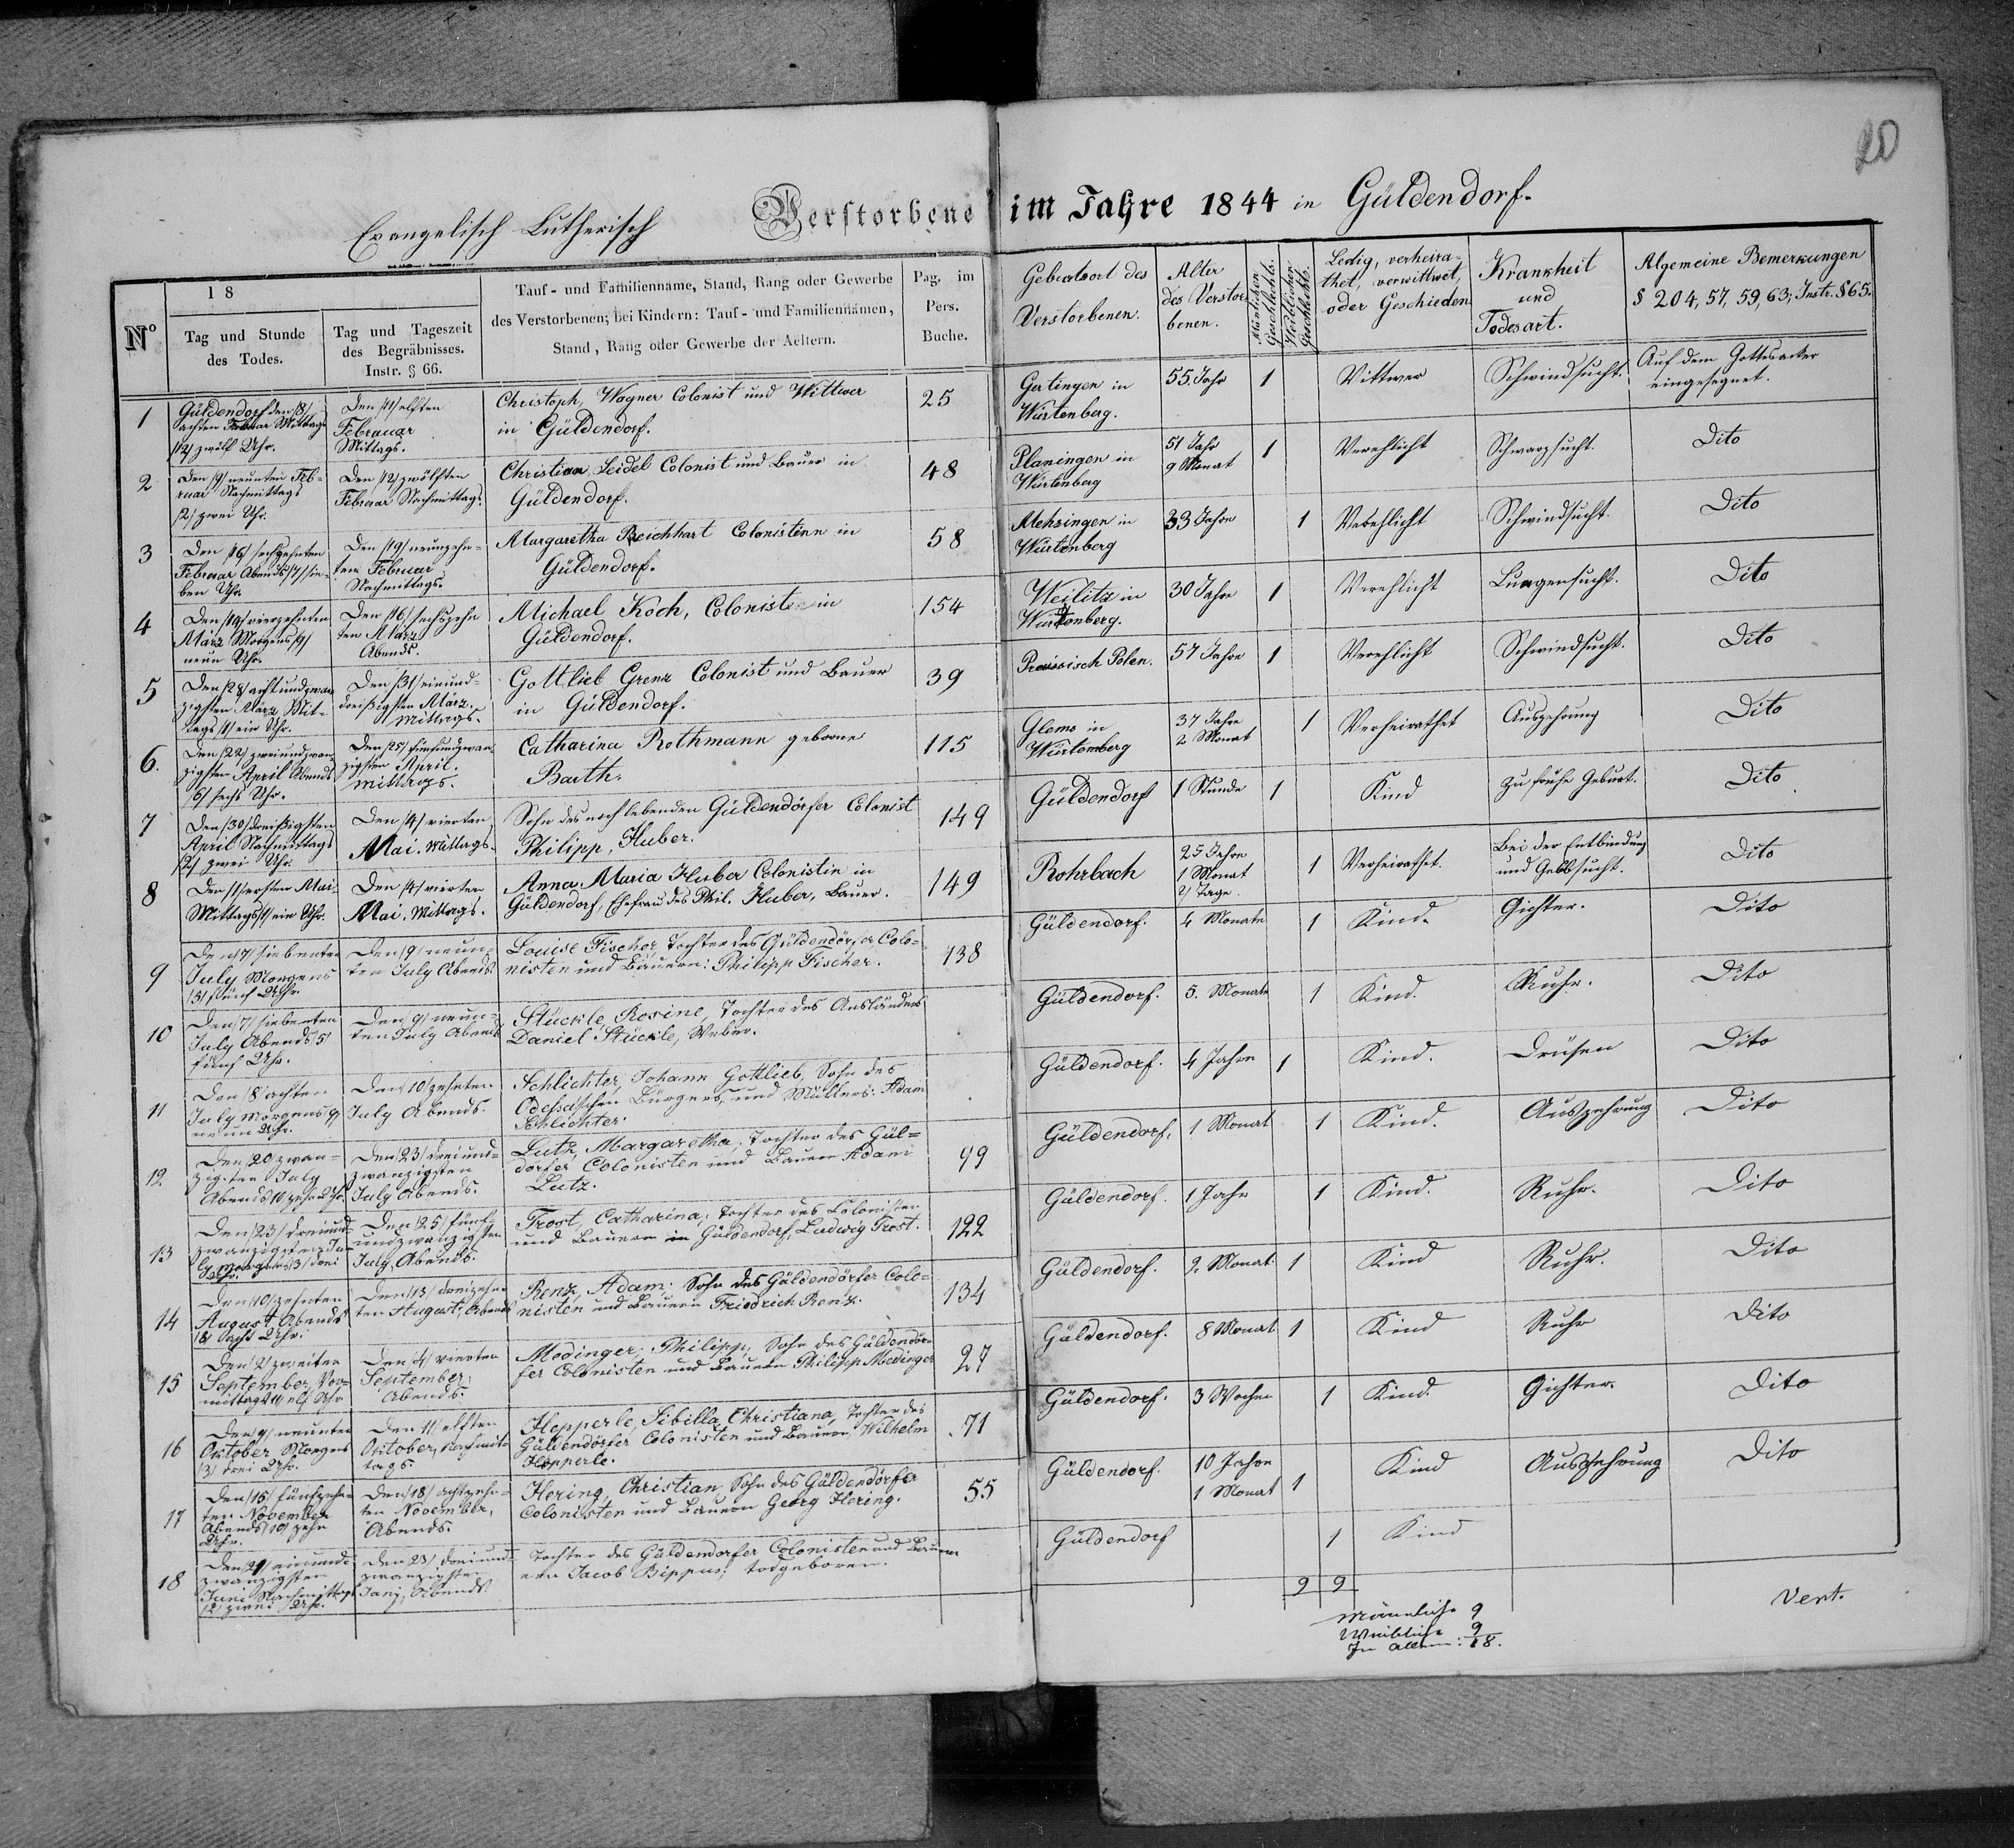 20
Evangelisch Lutherisch Verstorbene im Jahre 1844 in Güldendorf.
N°
18
Tag und Stunde
des Todes.
Tag und Tageszeit
des Begräbnisses.
Instr. § 66.
Tauf- und Familienname, Stand, Rang oder Gewerbe
des Verstorbenen; bei Kindern: Tauf- und Familiennamen,
Stand, Rang oder Gewerbe der Aeltern.
Pag. im
Pers.
Buche.
Geburtsort des
Verstorbenen.
Alter
des Verstor
benen.
Mänlichen
Geschlechts.
Weiblichen
Geschlechts.
Ledig, verheira-
thet, verwittwet,
oder Geschieden
Krankheit
und
Todesart.
Algemeine Bemerkungen
§ 204, 57, 59, 63; Instr. § 65.
1
Güldendorf den /8/
achten Februar Mittags
/12/ zwölf Uhr.
Den /11/ elften
Februar
Mittags.
Christoph, Wagner Colonist und Wittwer
in Güldendorf.
25
Gertingen in
Würtenberg.
55. Jahr
1
Wittwer
Schwindsucht.
Auf dem Gottesacker
eingesegnet.
2
Den /9/ neunten Feb-
ruar Nachmittags
/2/ zwei Uhr.
Den /12/ zwölften
Februar Nachmittags.
Christian Seidel Colonist und Bauer in
Güldendorf.
48
Planingen in
Würtenberg
51 Jahr
9 Monat
1
Verehlicht
Schwarzsucht.
Dito
3
Den /16/ sechzehnten
Februar Abends /7/ sie-
ben Uhr.
Den /19/ neunzehn-
ten Februar
Nachmittags.
Margaretha Reichhart Colonistinn in
Güldendorf.
58
Mehzingen in
Würtenberg
33 Jahre
1
Verehlicht
Schwindsucht.
Dito
4
Den /14/ vierzehnten
März Morgens /9/
neun Uhr.
Den /16/ sechszehn
ten März
Abends.
Michael Koch, Coloniste in
Güldendorf.
154
Weilitz in
Würtenberg.
30 Jahre
1
Verehlicht
Lungensucht.
Dito
5
Den /28/ achtundzwan
zigsten März Mit-
tags /1/ ein Uhr.
Den /31/ einund-
dreißigsten März.
Mittags.
Gottlieb Grenz Colonist und Bauer
in Güldendorf.
39
Preussisch Polen.
57 Jahre
1
Verehlicht
Schwindsucht.
Dito
6.
Den /22/ zweiundzwan
zigsten April Abends
/6/ sechs Uhr.
Den /25/ fünfundzwan
zigsten April.
Mittags.
Catharina Rothmann geborne
Barth.
115
Glems in
Würtemberg
37 Jahre
2 Monat
1
Verheirathet
Auszehrung
Dito
7
Den /30/ dreißigsten
April Nachmittags
/2/ zwei Uhr.
Den /4/ vierten
Mai. Mittags.
Sohn des noch lebenden Güldendörfer Colonist
Philipp, Huber.
149
Güldendorf
1 Stunde
1
Kind
Zu frühe Geburt.
Dito
8
Den /1/ ersten Mai
Mittags /1/ ein Uhr.
Den /4/ vierten
Mai. Mittags.
Anna Maria Huber Colonistin in
Güldendorf, Ehefrau des Phil. Huber, Bauer.
149
Rohrbach
25 Jahre
1 Monat
21 Tage.
1
Verheirathet.
Bei der Entbindung
und Gelbsucht.
Dito
9
Den /7/ siebenten
July Morgens
/5/ fünf Uhr.
Den /9/ neun-
ten July Abends.
Louise Fischer, Tochter des Güldendörfer Colo-
nisten und Bauern: Philipp Fischer.
138
Güldendorf.
4 Monate
1
Kind.
Gichter.
Dito
10
Den /7/ siebenten
July Abends /5/
fünf Uhr.
Den /9/ neun-
ten July Abends
Stückle, Rosine, Tochter des Ausländers
Daniel Stückle, Weber.
Güldendorf.
5. Monate
1
Kind.
Ruhr.
Dito
11
Den /8/ achten
July Morgens 9/
neun Uhr.
Den /10/ zehnten
July Abends.
Schlichter, Johann Gottlieb, Sohn des
Odessaischen Bürgers, und Müllers: Adam
Schlichter.
Güldendorf.
4 Jahre
1
Kind.
Drüsen
Dito
12.
Den /20 zwan-
zigsten July
Abends 10/ zehn Uhr.
Den /23/ dreiund-
zwanzigsten
July Abends.
Lutz, Margaretha, Tochter des Gül-
dörfer Colonisten und Bauern Adam
Lutz.
99
Güldendorf.
1 Monat
1
Kind.
Auszehrung
Dito
13
Den /23/ dreiund-
zwanzigsten Ju-
ly Morgens /3/ drei
Uhr.
Den /25/ fünf-
undzwanzigsten
July, Abends.
Trost, Catharina, Tochter des Colonisten
und Bauern in Güldendorf, Ludwig Trost.
122
Güldendorf.
1 Jahr
1
Kind.
Ruhr.
Dito
14
Den /10/ zehnten
August Abends
/8/ acht Uhr.
Den /13/ dreizehn-
ten August, Abends
Renz, Adam; Sohn des Güldendörfer Colo-
nisten und Bauern Friedrich Renz.
134
Güldendorf.
9. Monat.
1
Kind
Ruhr.
Dito
15
Den /2/ zweiten
September, Vor-
mittags 11/ elf Uhr
Den /4/ vierten
September,
Abends.
Medinger, Philipp, Sohn des Güldendör-
fer Colonisten und Bauern Philipp Medinger
27
Güldendorf.
8 Monat
1
Kind
Ruhr
Dito
16
Den /9/ neunten
Oktober Morgens
/3/ drei Uhr.
Den /11/ elften
Oktober, Nachmit-
tags.
Hepperle, Sibilla, Christiana, Tochter des
Güldendörfer Colonisten und Bauern Wilhelm
Hepperle.
71
Güldendorf.
3 Wochen
1
Kind.
Gichter.
Dito
17
Den /15/ fünfzehn-
ten November
Abends /10/ zehn
Uhr.
Den /18/ achtzehn-
ten November,
Abends.
Hering, Christian, Sohn des Güldendörfer
Colonisten und Bauern Georg Hering.
55
Güldendorf.
10 Jahre
1 Monat
1
Kind
Auszehrung
Dito
18
Den /21/ einund-
zwanzigsten
Juni Nachmittags
/2/ zwei Uhr.
Den 23/ dreiund-
zwanzigsten
Junj, Abends.
Tochter des Güldendorfer Colonisten und Bau-
ern Jacob Bippus; todgeboren.
Güldendorf
1
Kind
9 9
Männliche 9
Weibliche 9
In Allem: 18.
Vert.